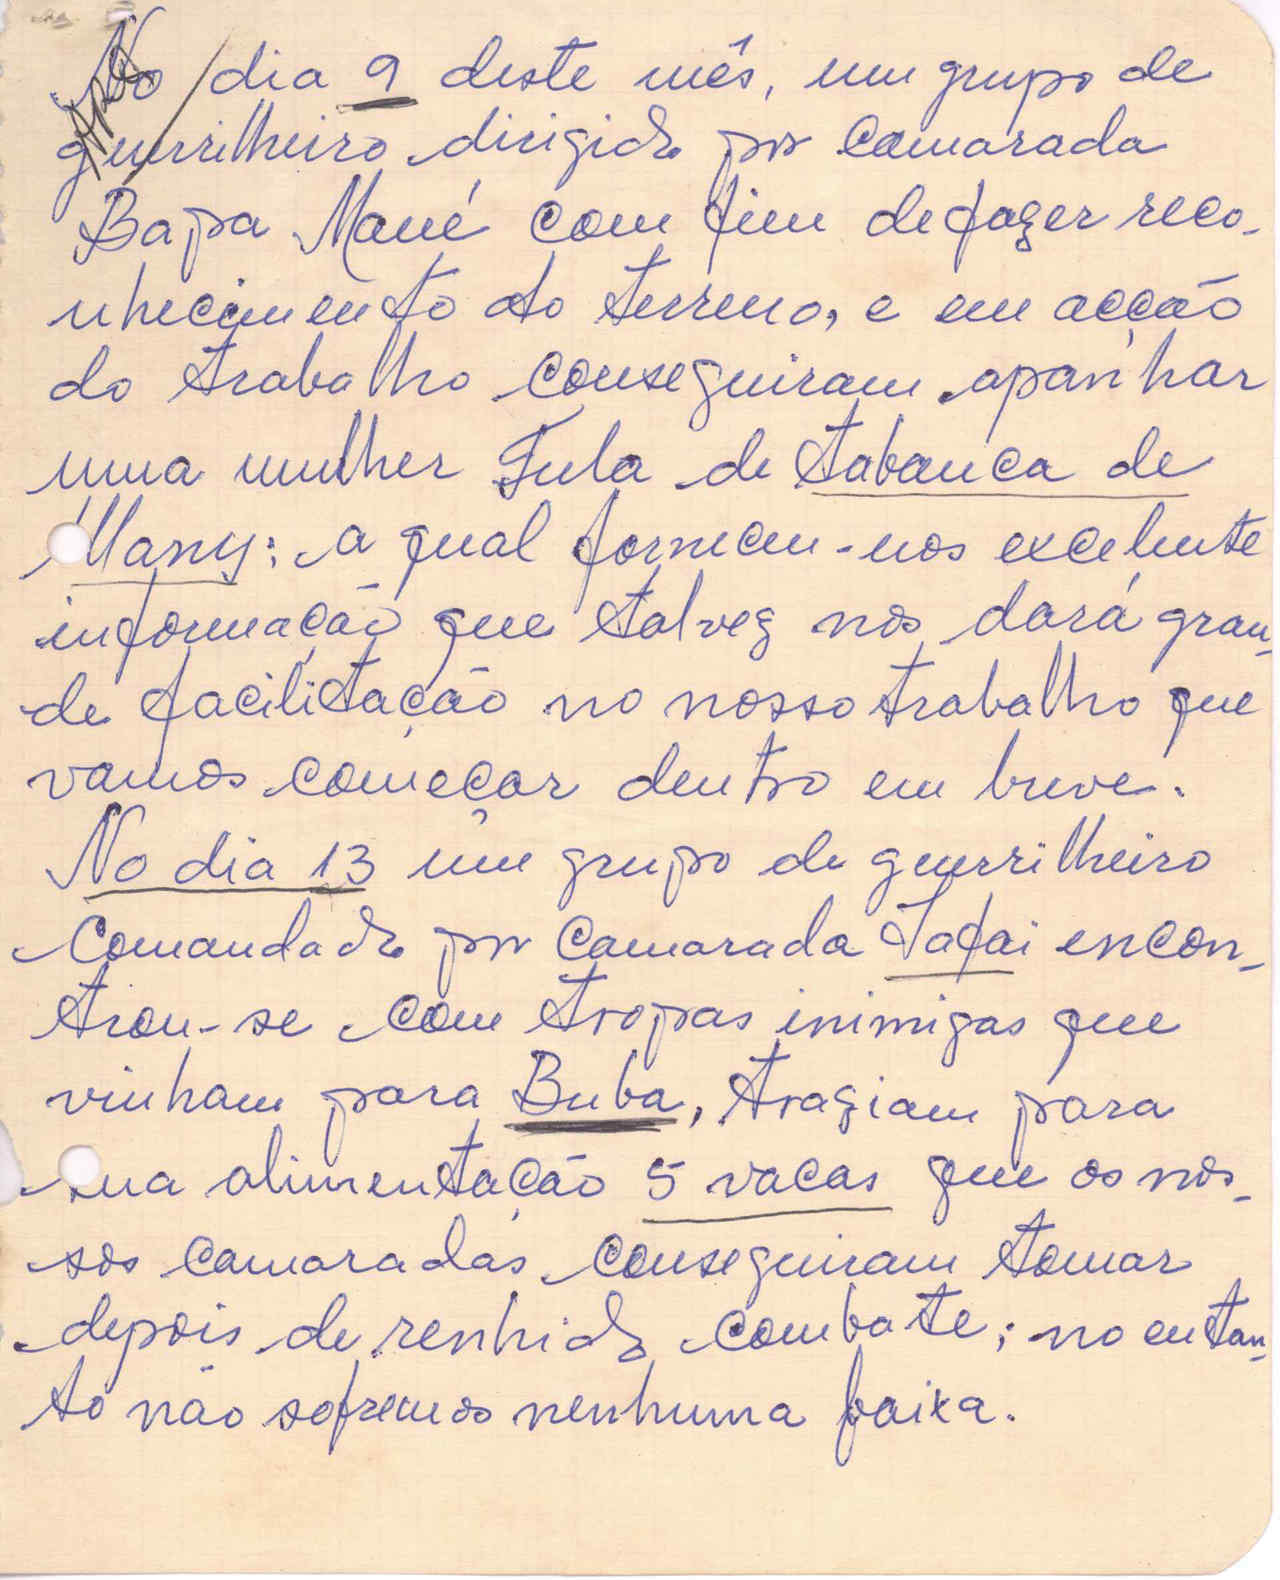 No dia 9 deste mês, um grupo de
guerrilheiro dirigido por camarada
Bapa Mané com fim de fazer reco-
nhecimento do terreno, e em acção
do trabalho conseguiram apanhar
uma mulher Fula de tabanca de
Many: a qual forneceu-nos excelente
informação que talvez nos dará gran-
de facilitação no nosso trabalho que
vamos começar dentro em breve.
No dia 13 um grupo de guerrilheiro
comandado por camarada Fafai encon-
trou-se com tropas inimigas que
vinham para Buba, tragiam para
sua alimentação 5 vacas que os nos-
sos camaradas conseguiram tomar
depois de renhido combate; no entan-
to não sofremos nenhuma baixa.